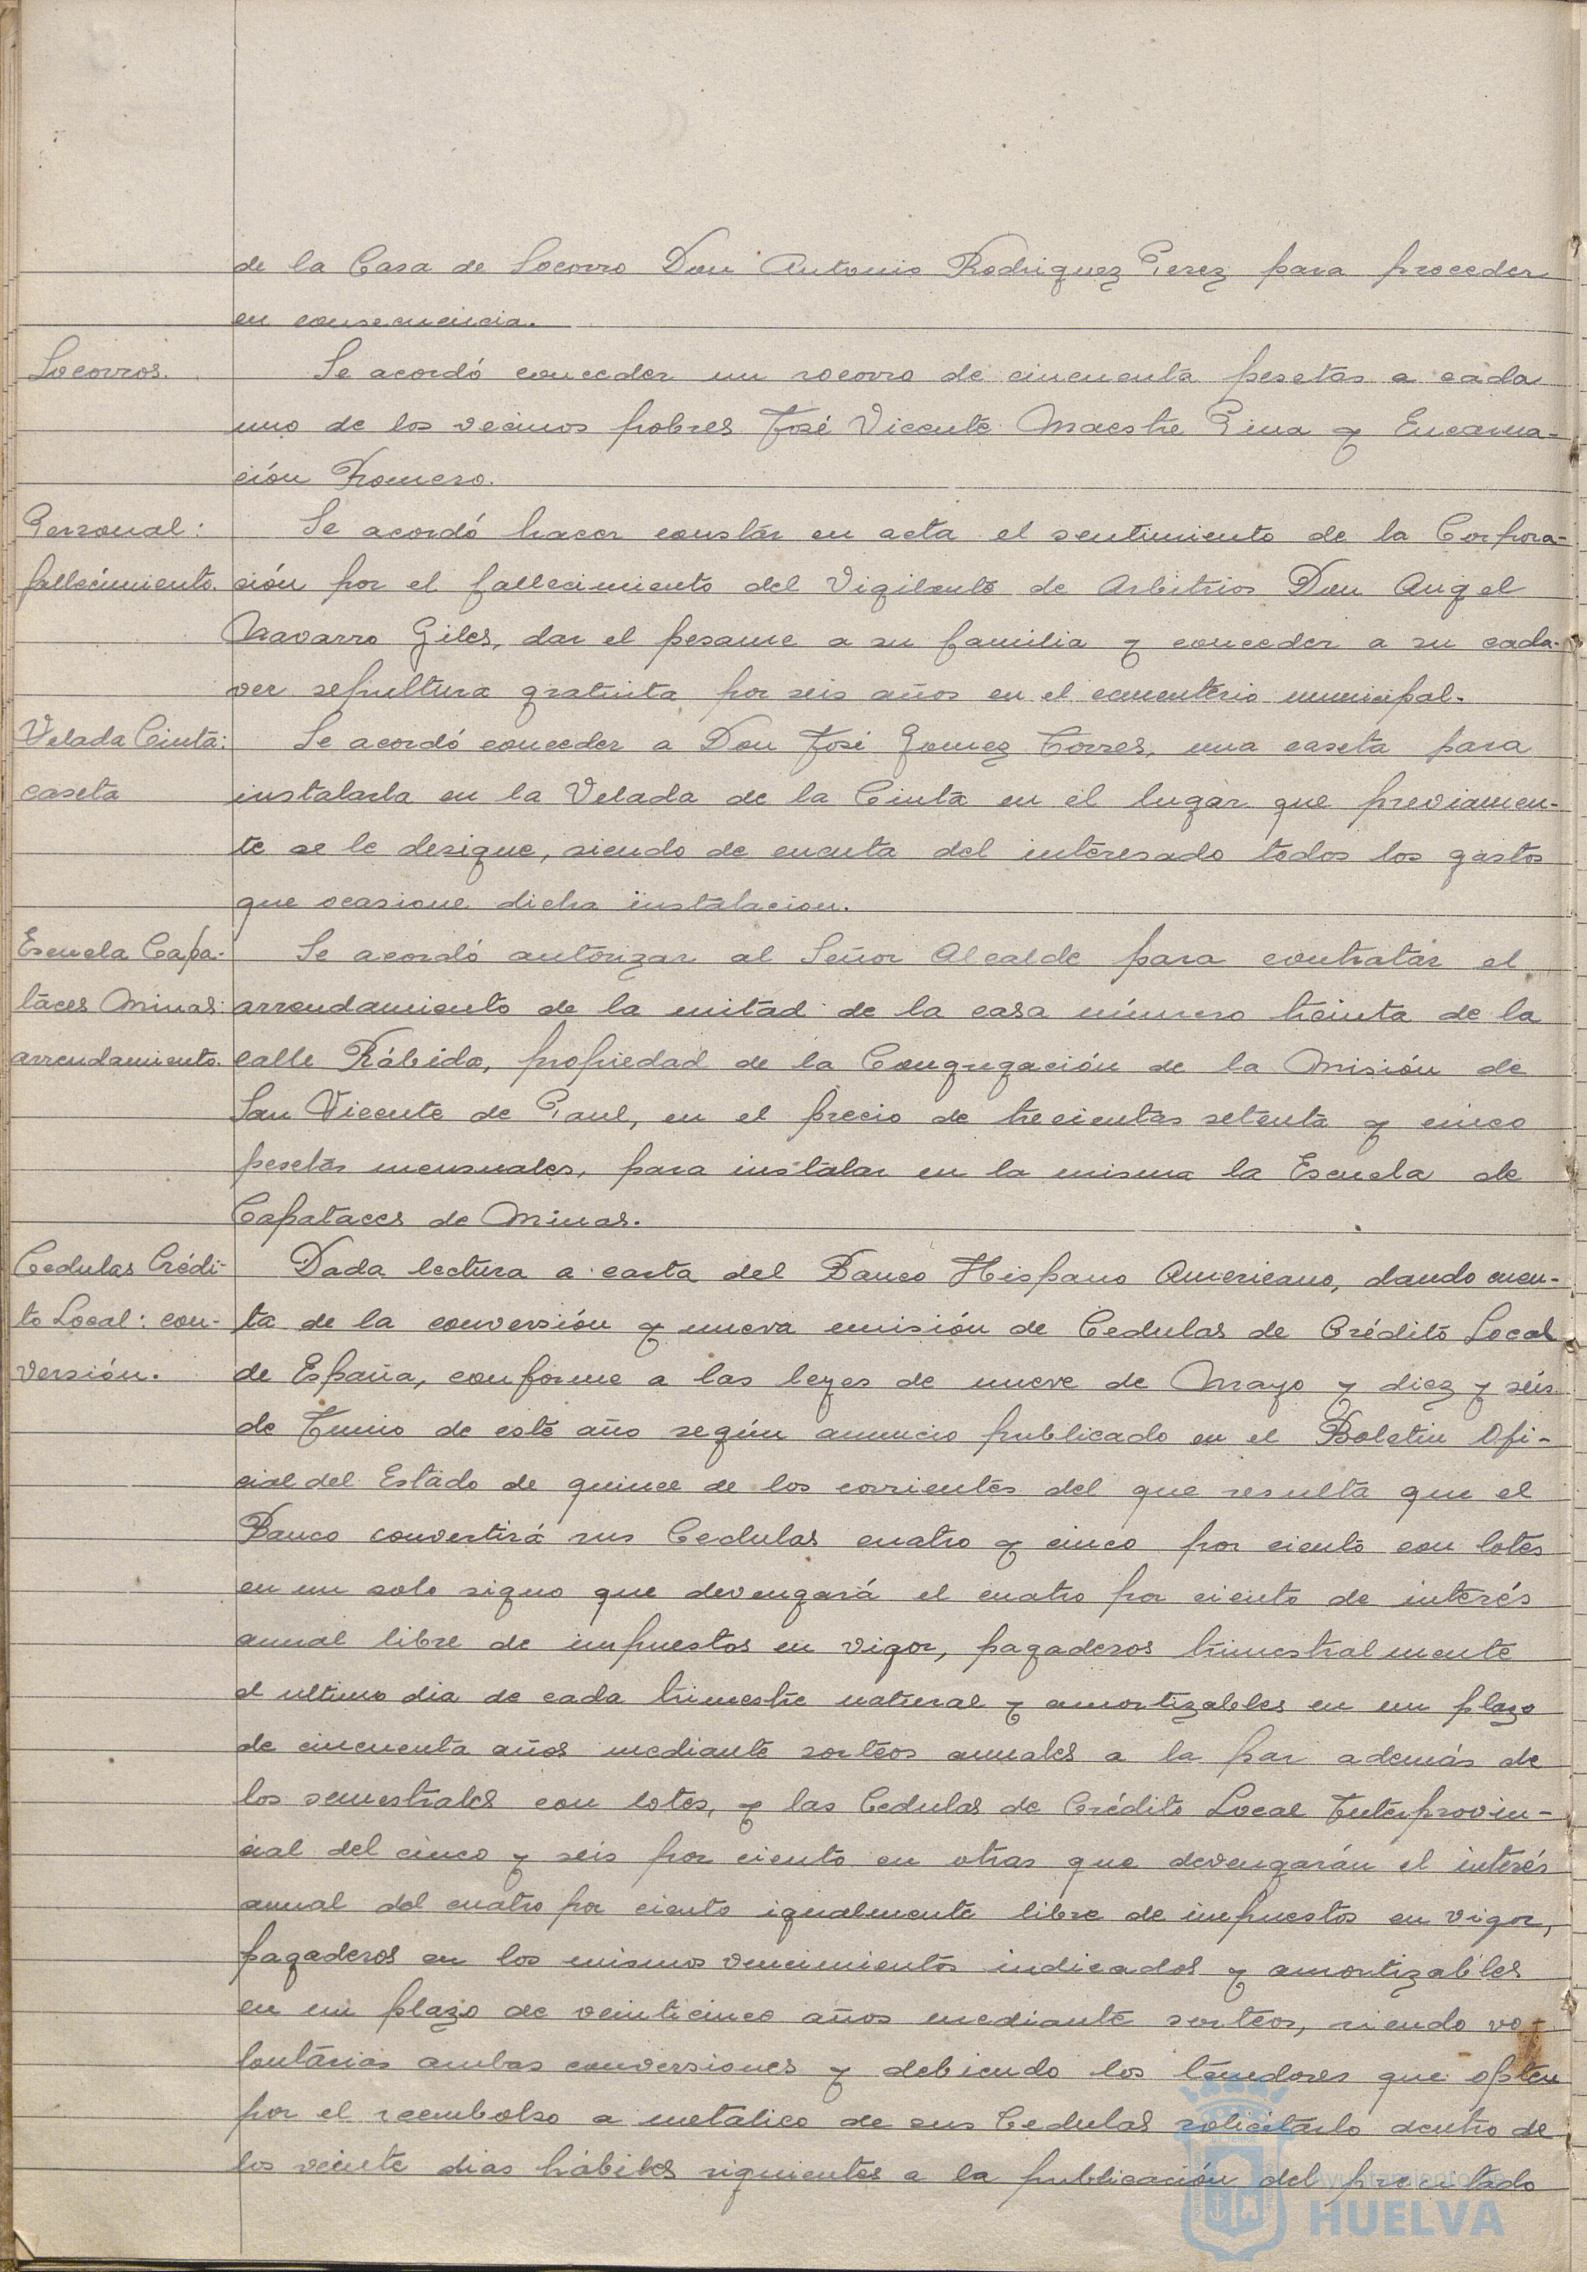 de la Casa de Socorro Don Antonio Rodriguez Perez para proceder
en consecuencia.
Socorros.
Se acordó conceder un socorro de cincuenta pesetas a cada
uno de los vecinos pobres José Vicente Maestre Pina y Encarna-
ción Romero.
Personal:
fallecimiento.
Se acordó hacer constar en acta el sentimiento de la Corpora-
ción por el fallecimiento del Vigilante de Arbitrios Don Angel
Navarro Giles, dar el pesame a su familia y conceder a su cada-
ver sepultura gratuita por seis años en el cementerio municipal.
Velada Cinta:
caseta
Se acordó conceder a Don José Gomez Torres, una caseta para
instalarla en la Velada de la Cinta en el lugar que previamen-
te se le designe, siendo de cuenta del interesado todos los gastos
que ocasione dicha instalacion.
Escuela Capa-
taces Minas:
arrendamiento.
Se acordó autorizar al Señor Alcalde para contratar el
arrendamiento de la mitad de la casa número treinta de la
calle Rábida, propiedad de la Congregación de la Misión de
San Vicente de Paul, en el precio de trecientas setenta y cinco
pesetas mensuales, para instalar en la misma la Escuela de
Capataces de Minas.
Cedulas Crédi-
to Local: con-
versión.
Dada lectura a carta del Banco Hispano Americano, dando cuen-
ta de la conversión y nueva emisión de Cedulas de Crédito Local
de España, conforme a las leyes de nueve de Mayo y diez y seis
de Junio de este año según anuncio publicado en el Boletin Ofi-
cial del Estado de quince de los corrientes del que resulta que el
Banco convertirá sus Cedulas cuatro y cinco por ciento con lotes
en un solo signo que devengará el cuatro por ciento de interés
anual libre de impuestos en vigor, pagaderos trimestralmente
el ultimo dia de cada trimestre natural y amortizables en un plazo
de cincuenta años mediante sorteos anuales a la par además de
los semestrales con lotes, y las Cedulas de Crédito Local Interprovin-
cial del cinco y seis por ciento en otras que devengarán el interés
anual del cuatro por ciento igualmente libre de impuestos en vigor,
pagaderos en los mismos vencimientos indicados y amortizables
en un plazo de veinticinco años mediante sorteos, siendo vo-
lontarias ambas conversiones y debiendo los tenedores que opten
por el reembolso a metalico de sus Cedulas solicitarlo dentro de
los veinte dias hábiles siguientes a la publicación del precitado
Ayuntamiento de
HUELVA